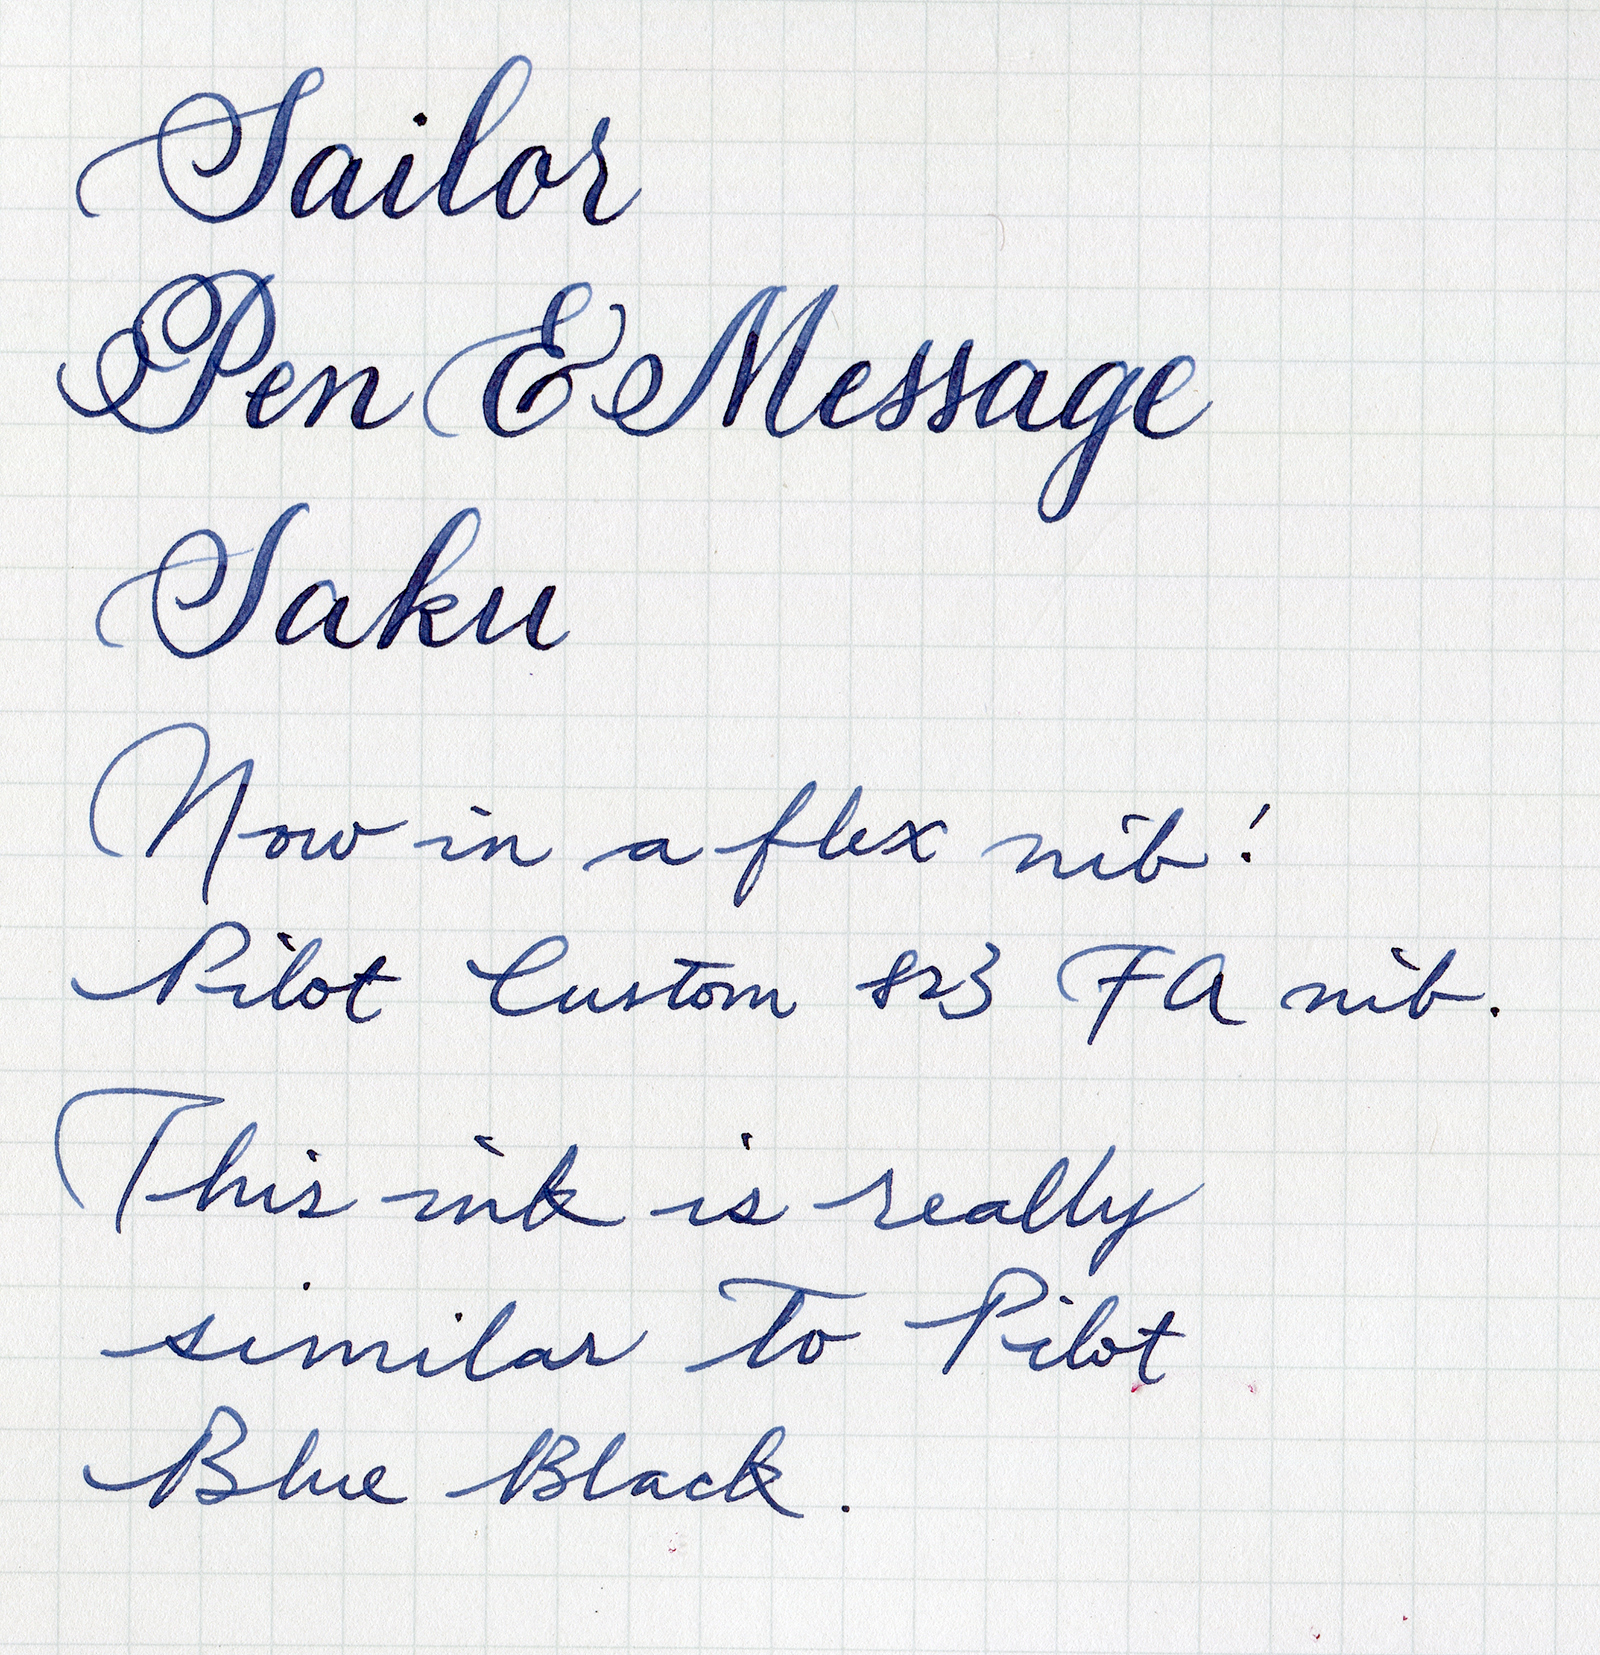 Sailor
Pen & Message
Saku
Now in a flex nib!
Pilot Custom 823 FA nib.
This ink is really
similar to Pilot
Blue Black.